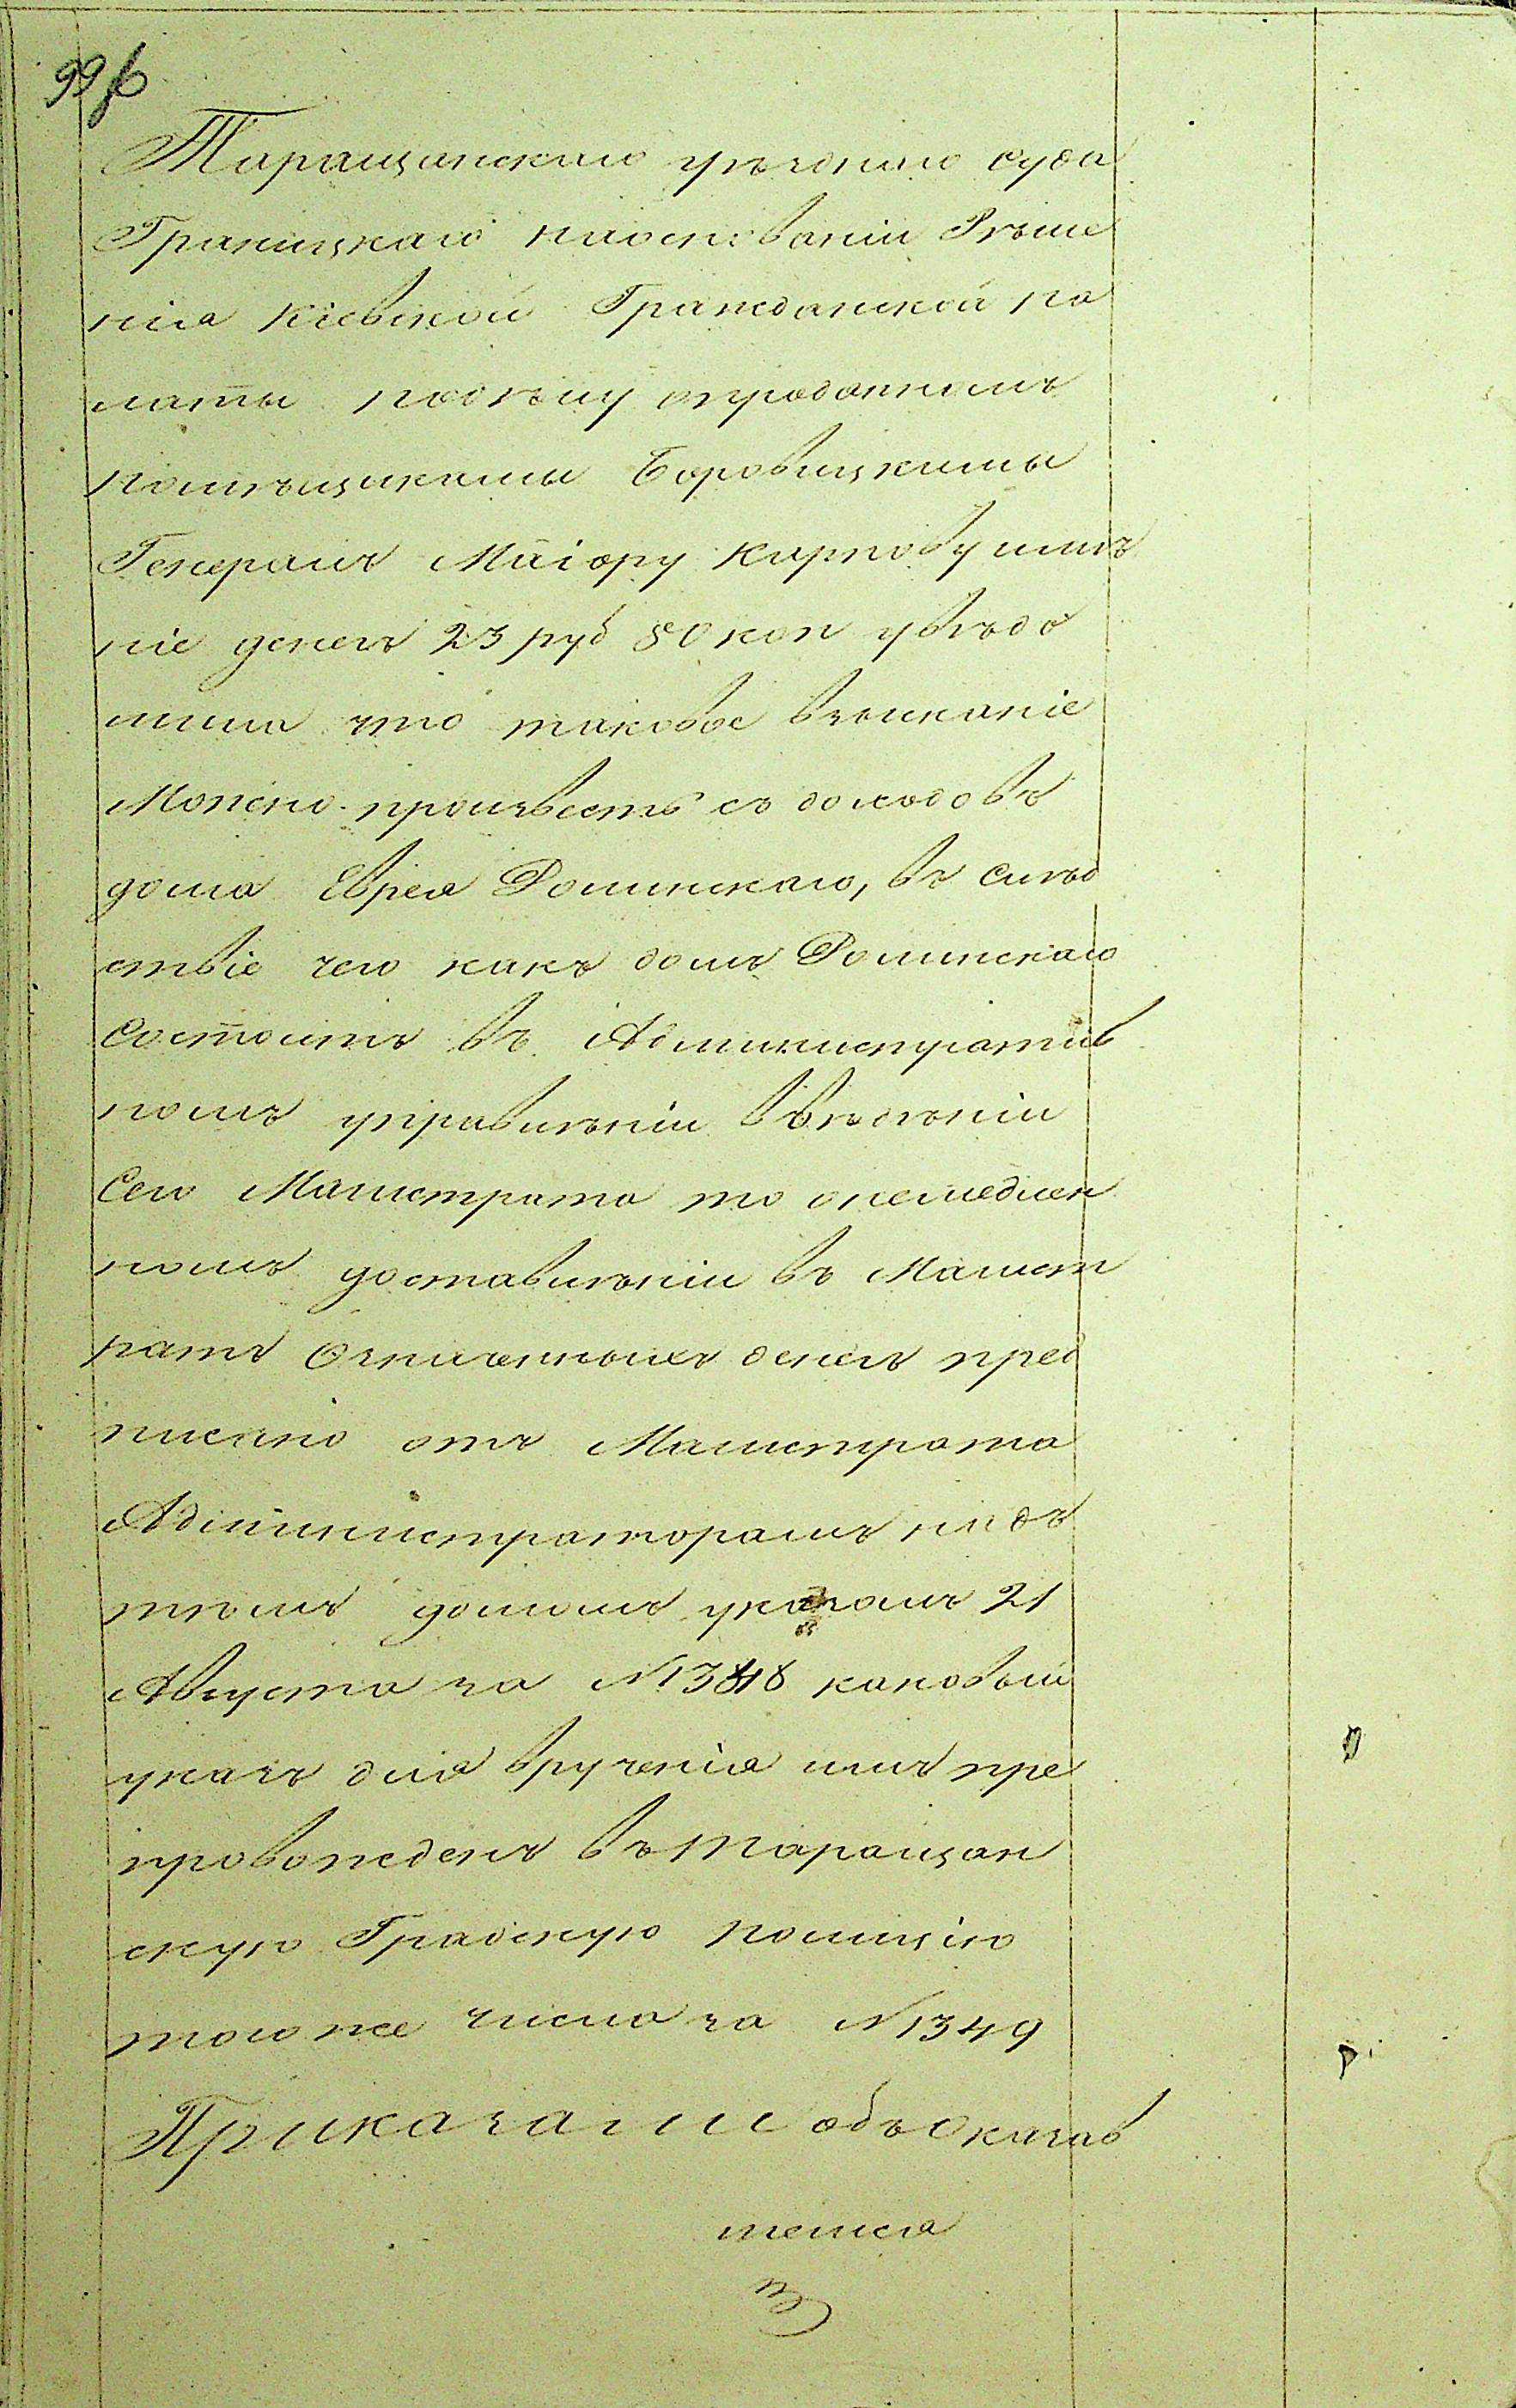 99 об
Таращанскаго уѣзднаго суда
Границкаго наоснованіи Рѣше
нія Кіевской Гражданской па
латы подѣлу опроданномъ
помѣщиками Боровицкимы
Генералъ Маіору Карпову имѣ
ніе денегъ 23 руб 80 коп увѣдо
мила что таковое взысканіе
Можно произвесть съ доходовъ
дома Еврея Ролинскаго, въ Слѣд
ствіе чего какъ домъ Ролинскаго
Состоитъ въ Административ
номъ управлѣніи въвѣденіи
Сего Магистрата то онемедлен
номъ доставлѣніи въ Магист
ратъ Означенныхъ денегъ пред
писано отъ Магистрата
Администраторамъ надъ
тѣмъ домомъ указомъ 21
Августа за №1348 каковый
указъ для врученія имъ пре
провожденъ въ Таращан
скую Градскую полицію
тогоже числа за №1349
Приказали объоказав
шемся